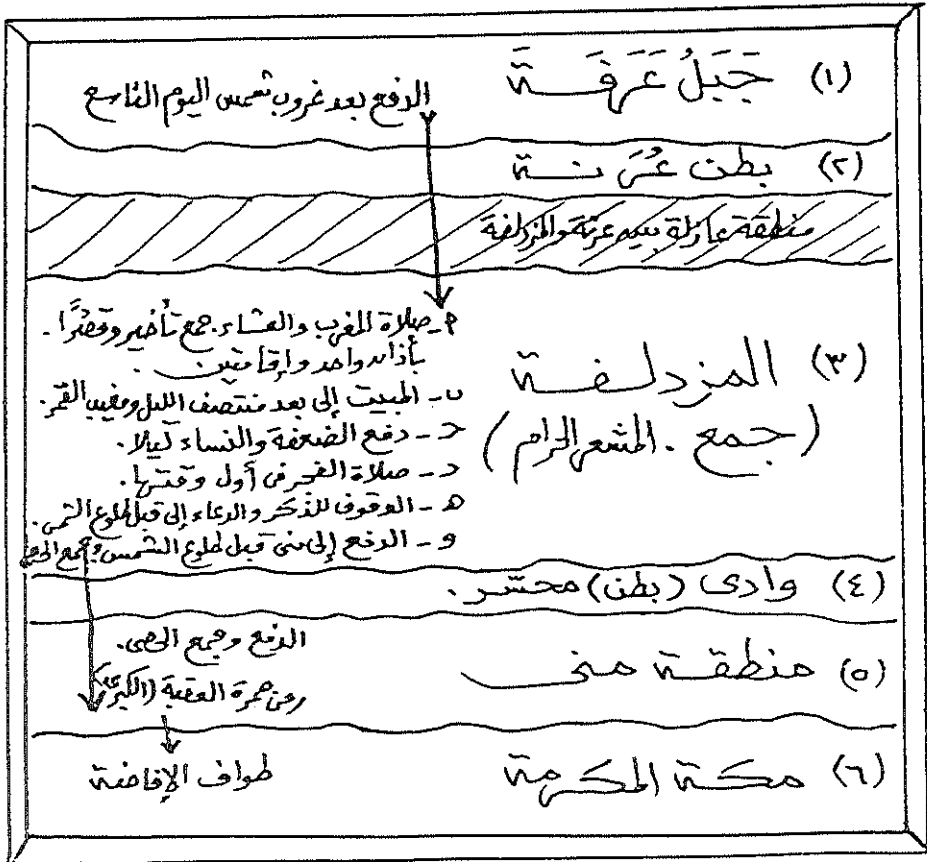 (١) جَبَلُ عَرَفَة
الدفع بعد غروب شمس اليوم التاسع
(٢) بطن عُرَنة
منطقة عازلة بين عرنة والمزدلفة
(٣) المزدلفة
(جمع . المشعر الحرام)
أ- صلاة المغرب والعشاء جمع تأخير وقصرًا .
بأذان واحد وإقامتين .
ب- المبيت إلى بعد منتصف الليل ومغيب القمر.
حـ - دفع الضعفة والنساء ليلا.
د - صلاة الفجر في أول وقتها.
هـ - الوقوف للذكر والدعاء إلى قبل طلوع الشمس.
و - الدفع إلى منى قبل طلوع الشمس وجمع الحصى
(٤) وادى (بطن) محسّر .
(٥) منطقة منى
الدفع وجمع الحصى.
رمى جمرة العقبة (الكبرى)
(٦) مكة المكرمة
طواف الإفاضة